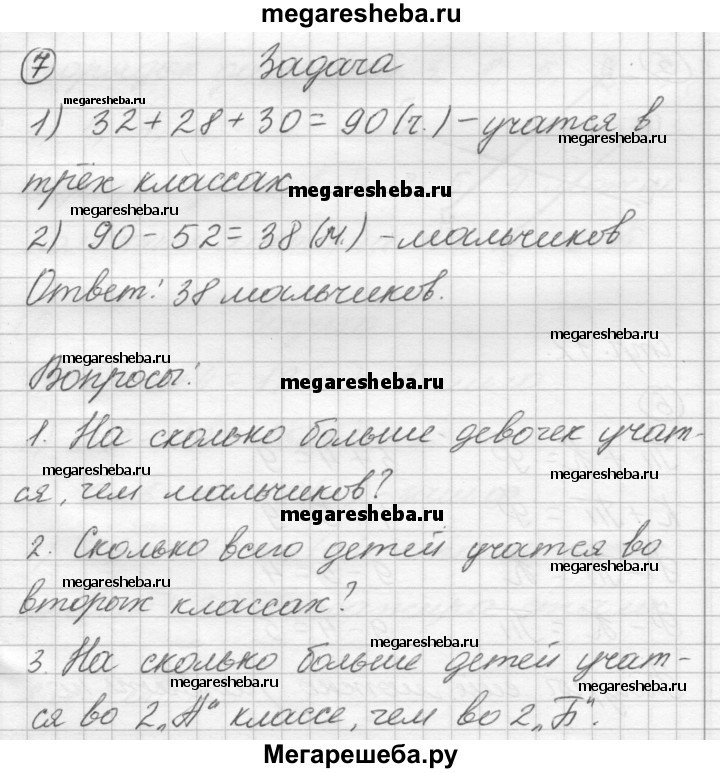 megaresheba.ru
7 Задача
megaresheba.ru
1) 32 + 28 + 30 = 90 (ч.) - учатся в
трёх классах
megaresheba.ru
megaresheba.ru
2) 90 - 52 = 38 (м.) - мальчиков
Ответ: 38 мальчиков.
megaresheba.ru
megaresheba.ru
Вопросы:
megaresheba.ru
1. На сколько больше девочек учат-
megaresheba.ru
ся, чем мальчиков?
megaresheba.ru
megaresheba.ru
2. Сколько всего детей учатся во
megaresheba.ru
megaresheba.ru
вторых классах?
megaresheba.ru
3. На сколько больше детей учат-
megaresheba.ru
megaresheba.ru
ся во 2 „А" классе, чем во 2 „Б".
Мегарешеба.ру